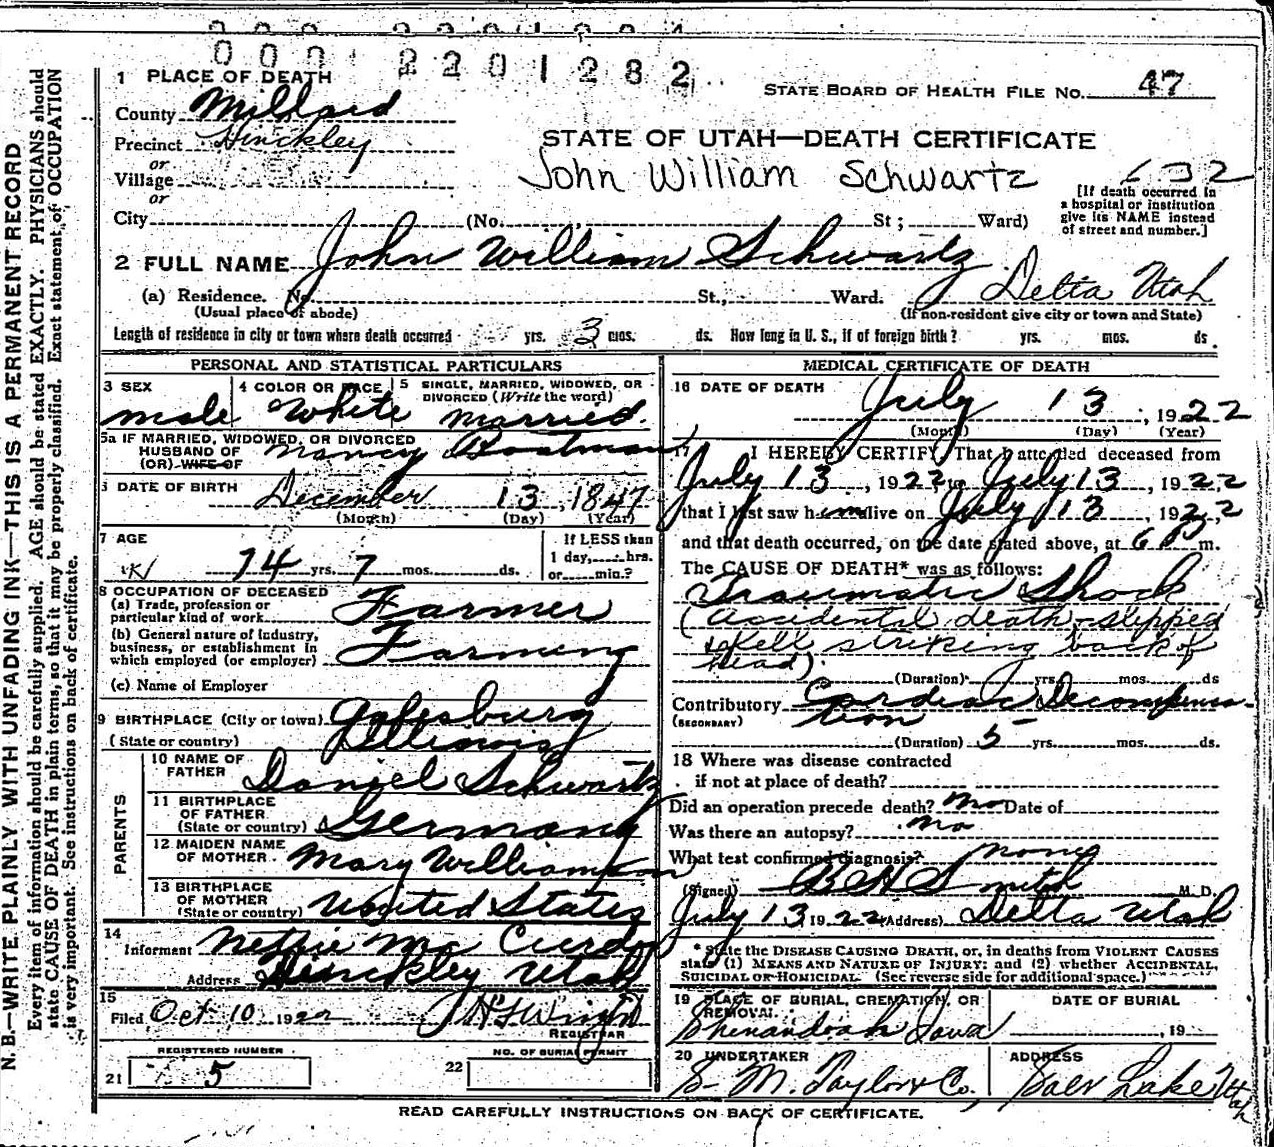 000 2201282
1 PLACE OF DEATH
STATE BOARD OF HEALTH FILE NO. 47
County Millard
Precinct Hinckley
STATE OF UTAH—DEATH CERTIFICATE
or
Village
John William Schwartz
632
or
[If death occurred in
a hospital or institution
give its NAME instead
of street and number.]
City (No. St ; Ward)
2 FULL NAME John William Schwartz
(a) Residence. No. St., Ward. Delta Utah
(Usual place of abode) (If non-resident give city or town and State)
Length of residence in city or town where death occurred yrs. 3 mos. ds. How long in U. S., if of foreign birth? yrs. mos. ds.
PERSONAL AND STATISTICAL PARTICULARS
3 SEX 4 COLOR OR RACE 5 SINGLE, MARRIED, WIDOWED, OR
DIVORCED (Write the word)
male White married
5a IF MARRIED, WIDOWED, OR DIVORCED
HUSBAND OF Nancy Boatman
(OR) WIFE OF
6 DATE OF BIRTH December 13, 1847
(Month) (Day) (Year)
7 AGE If LESS than
1 day, hrs.
74 yrs. 7 mos. ds. or min.?
8 OCCUPATION OF DECEASED
(a) Trade, profession or
particular kind of work Farmer
(b) General nature of industry,
business, or establishment in
which employed (or employer) Farming
(c) Name of Employer
9 BIRTHPLACE (City or town) Galesburg
(State or country) Illinois
PARENTS
10 NAME OF
FATHER Daniel Schwartz
11 BIRTHPLACE
OF FATHER
(State or country) Germany
12 MAIDEN NAME
OF MOTHER Mary Williamson
13 BIRTHPLACE
OF MOTHER
(State or country) United States
14
Informent Nettie Mc Curdy
Address Hinckley Utah
15
Filed Oct 10 1922 Wright
REGISTRAR
REGISTERED NUMBER NO. OF BURIAL PERMIT
21 5 22
MEDICAL CERTIFICATE OF DEATH
16 DATE OF DEATH
July 13, 1922
(Month) (Day) (Year)
17 I HEREBY CERTIFY, That I attended deceased from
July 13, 1922, to July 13, 1922,
that I last saw him alive on July 13, 1922,
and that death occurred, on the date stated above, at 6 P m.
The CAUSE OF DEATH* was as follows:
Traumatic Shock
(accidental death - slipped
& fell striking back of
head).
(Duration) yrs. mos. ds
Contributory Cardiac Decompensa-
(SECONDARY) tion
(Duration) 5 yrs. mos. ds.
18 Where was disease contracted
if not at place of death?
Did an operation precede death? no Date of
Was there an autopsy? no
What test confirmed diagnosis? none
(Signed) Smith M. D.
July 13 1922 (Address) Delta Utah
* State the DISEASE CAUSING DEATH, or, in deaths from VIOLENT CAUSES
state (1) MEANS AND NATURE OF INJURY; and (2) whether ACCIDENTAL,
SUICIDAL OR HOMICIDAL. (See reverse side for additional space.)
19 PLACE OF BURIAL, CREMATION, OR DATE OF BURIAL
REMOVAL.
Shenandoah Iowa , 19
20 UNDERTAKER ADDRESS
S. M. Taylor & Co, Salt Lake Utah
READ CAREFULLY INSTRUCTIONS ON BACK OF CERTIFICATE.
N. B.—WRITE PLAINLY WITH UNFADING INK—THIS IS A PERMANENT RECORD
Every item of information should be carefully supplied. AGE should be stated EXACTLY. PHYSICIANS should
state CAUSE OF DEATH in plain terms, so that it may be properly classified. Exact statement of OCCUPATION
is very important. See instructions on back of certificate.